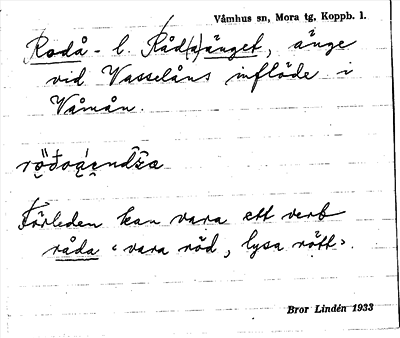 Våmhus sn, Mora tg. Koppb. l.
Rodå- l. Råd(a)änget, änge
vid Vasselåns inflöde i
Våmån.
Förleden kan vara ett verb
råda ‹ vara röd, lysa rött ›.
Bror Lindén 1933